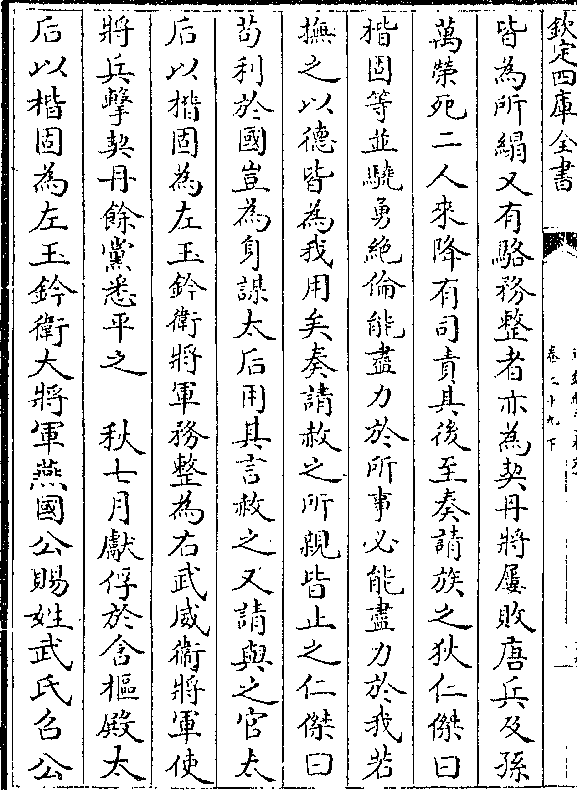 欽定四庫全書
卷二十九下
皆為所縜又有駱務整者亦為契丹將屢敗唐兵及孫
萬榮死二人來降有司責其後至奏請族之狄仁傑曰
楷固等並驍勇絶倫能盡力於所事必能盡力於我若
撫之以德皆為我用矣奏請赦之所親皆止之仁傑曰
茍利於國豈為身謀太后用其言赦之又請與之官太
后以楷固為左玉鈐衛將軍務整為右武威衛將軍使
將兵擊契丹餘黨悉平之　秋七月獻俘於含樞殿太
后以楷固為左玉鈐衛大將軍燕國公賜姓武氏召公